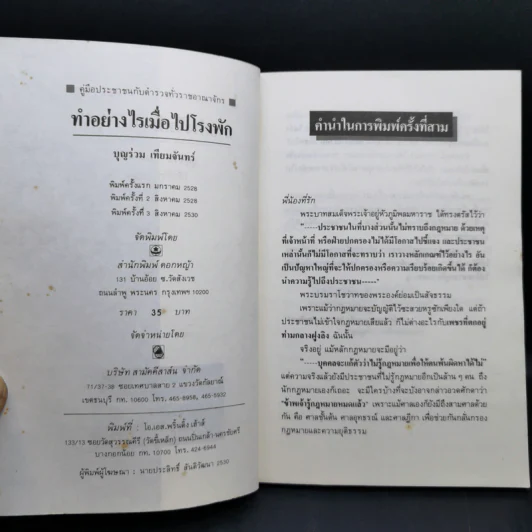 คู่มือประชาชนกับตำรวจทั่วราชอาณาจักร
ทำอย่างไรเมื่อไปโรงพัก
บุญร่วม เทียมจันทร์
พิมพ์ครั้งแรก มกราคม 2528
พิมพ์ครั้งที่ 2 สิงหาคม 2528
พิมพ์ครั้งที่ 3 สิงหาคม 2530
จัดพิมพ์โดย
สำนักพิมพ์ ดอกหญ้า
131 บ้านอ้อย ซ.วัดสังเวช
ถนนลำพู พระนคร กรุงเทพฯ 10200
ราคา 35 บาท
จัดจำหน่ายโดย
บริษัท สามัคคีสาส์น จำกัด
71/37-39 ซอยเทศบาลสาย 2 แขวงวัดกัลยาณ์
เขตธนบุรี กท. 10600 โทร. 465-8958, 466-5602
พิมพ์ที่ : โอ.เอส.พริ้นติ้ง เฮ้าส์
133/13 ซอยวัดสุวรรณคีรี (วัดขี้เหล็ก) ถนนปิ่นเกล้า นครชัยศรี
บางกอกน้อย กท. 10700 โทร. 424-6944
ผู้พิมพ์ผู้โฆษณา : นายประสิทธิ์ สันติวัฒนา 2530
คำนำในการพิมพ์ครั้งที่สาม
พี่น้องที่รัก
พระบาทสมเด็จพระเจ้าอยู่หัวภูมิพลมหาราช ได้ทรงตรัสไว้ว่า
"-----ประชาชนในที่บางส่วนนั้นไม่ทราบถึงกฎหมาย ด้วยเหตุ
ที่เจ้าหน้าที่ หรือฝ่ายปกครองไม่ได้มีโอกาสไปชี้แจง และประชาชน
เหล่านั้นก็ไม่มีโอกาสที่จะทราบว่า เราวางหลักเกณฑ์ไว้อย่างไร อัน
เป็นปัญหาใหญ่ที่จะให้ปกครองหรือความเรียบร้อยเกิดขึ้นได้ ก็ต้อง
นำความรู้ไปถึงประชาชน-----"
พระบรมราโชวาทของพระองค์ย่อมเป็นสัจธรรม
เพราะแม้ว่ากฎหมายจะบัญญัติไว้ซะสวยหรูซักเพียงใด แต่ถ้า
ประชาชนไม่เข้าใจกฎหมายเสียแล้ว ก็ไม่ต่างอะไรกับเพชรที่ตกอยู่
ท่ามกลางฝูงลิง ฉันนั้น
จริงอยู่ แม้หลักกฎหมายจะมีอยู่ว่า
"-----บุคคลจะแก้ตัวว่าไม่รู้กฎหมายเพื่อให้ตนพ้นผิดหาได้ไม่"
แต่ความจริงแล้วยังมีประชาชนที่ไม่รู้กฎหมายอีกเป็นล้าน ๆ คน ถึง
นักกฎหมายเองก็เถอะ จะมีใครบ้างที่จะบังอาจกล่าวอวดศักดาว่า
"ข้าพเจ้ารู้กฎหมายหมดแล้ว" เพราะแม้ศาลเองก็ยังมีถึงสามศาลด้วย
กัน คือ ศาลชั้นต้น ศาลอุทธรณ์ และศาลฎีกา เพื่อช่วยกันกลั่นกรอง
กฎหมายและความยุติธรรม